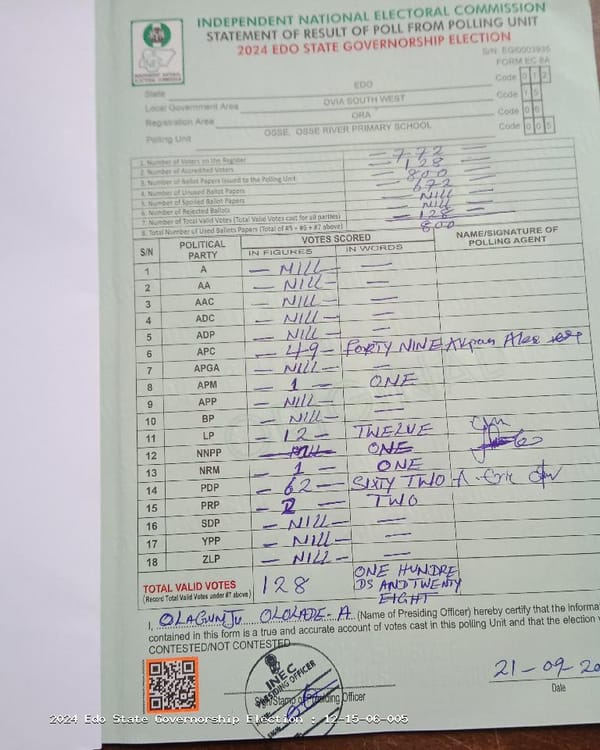 INDEPENDENT NATIONAL ELECTORAL COMMISSION
STATEMENT OF RESULT OF POLL FROM POLLING UNIT
2024 EDO STATE GOVERNORSHIP ELECTION
FORM EC 8A
State EDO Code 012
Local Government Area OVIA SOUTH WEST Code 15
Registration Area ORA Code 06
Polling Unit OSSE, OSSE RIVER PRIMARY SCHOOL Code 005
1. Number of Voters on the Register 772
2. Number of Accredited Voters 128
3. Number of Ballot Papers Issued to the Polling Unit 800
4. Number of Unused Ballot Papers 672
5. Number of Spoiled Ballot Papers NILL
6. Number of Rejected Ballots NILL
7. Number of Total Valid Votes (Total Valid Votes cast for all parties) 128
8. Total Number of Used Ballots Papers (Total of #5 + #6 + #7 above) 800
S/N POLITICAL PARTY VOTES SCORED NAME/SIGNATURE OF POLLING AGENT
IN FIGURES IN WORDS
1 A — NILL — —
2 AA — NILL — —
3 AAC — NILL — —
4 ADC — NILL — —
5 ADP — NILL — —
6 APC — 49 — FORTY NINE Akpan Alex
7 APGA — NILL — —
8 APM — 1 — ONE
9 APP — NILL — —
10 BP — NILL — —
11 LP — 12 — TWELVE
12 NNPP ONE
13 NRM — 1 — ONE
14 PDP — 62 — SIXTY TWO
15 PRP — 2 — TWO
16 SDP — NILL — —
17 YPP — NILL — —
18 ZLP — NILL — —
TOTAL VALID VOTES 128 ONE HUNDRE
(Record Total Valid Votes under #7 above) DS AND TWENTY
EIGHT
I, OLAGUNJU OLOLADE-A (Name of Presiding Officer) hereby certify that the informa
contained in this form is a true and accurate account of votes cast in this polling Unit and that the election
CONTESTED/NOT CONTESTED
INEC
PRESIDING OFFICER
Sign/Stamp of Presiding Officer
21-09-20
Date
2024 Edo State Governorship Election : 12-15-06-005